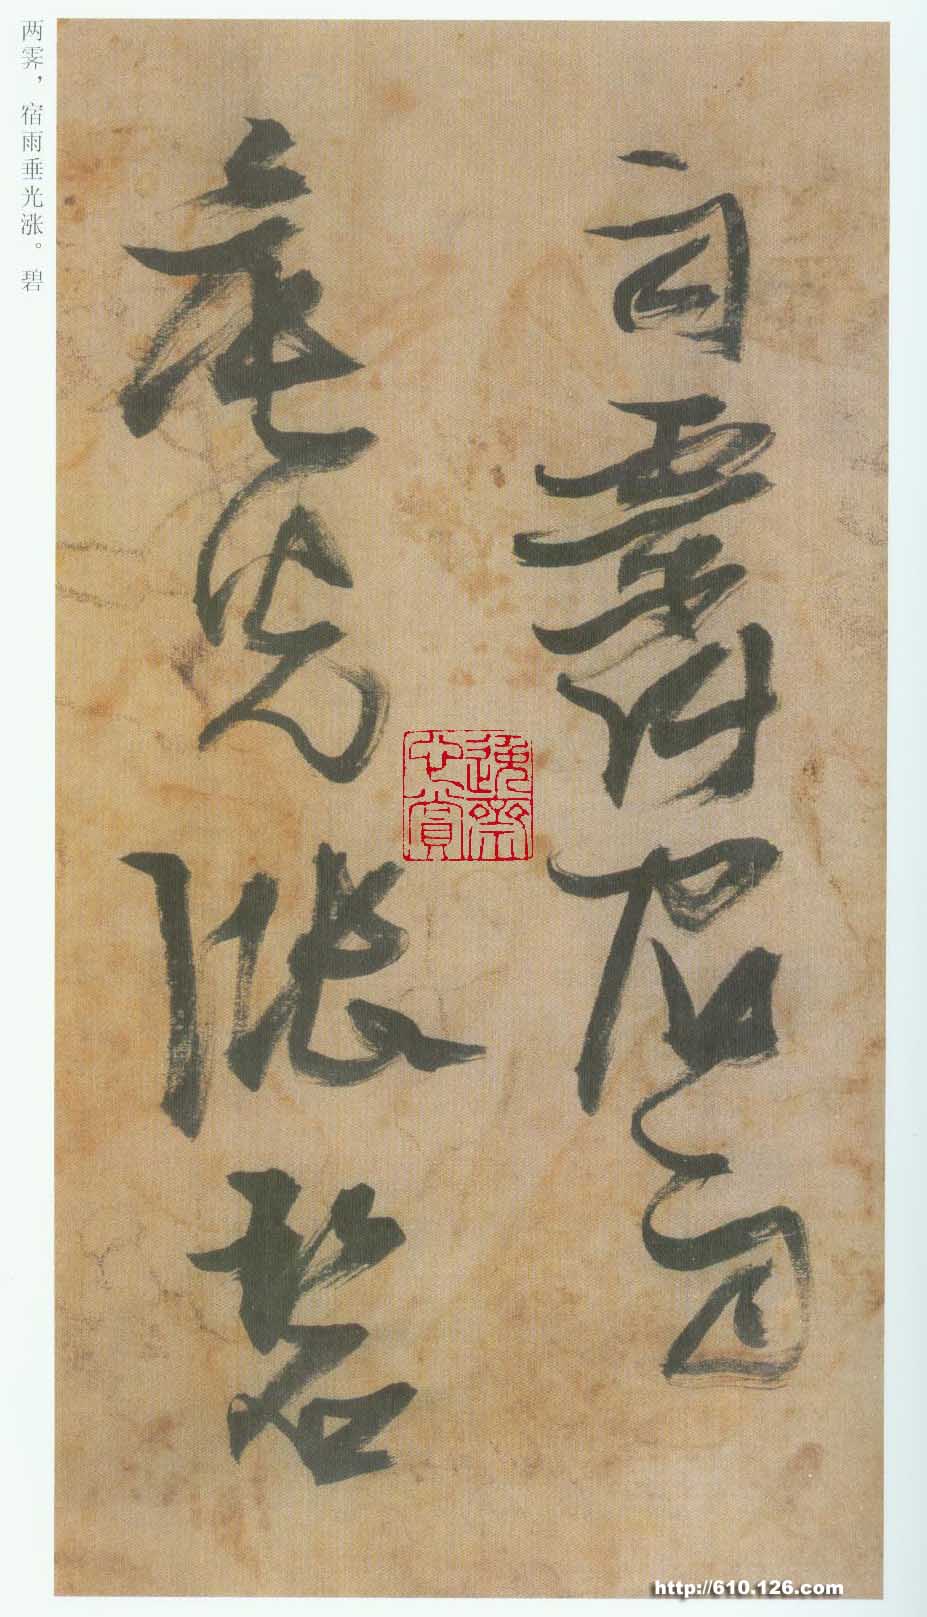 两霽宿雨
垂光漲碧
两霁，宿雨垂光涨。碧
http://610.126.com